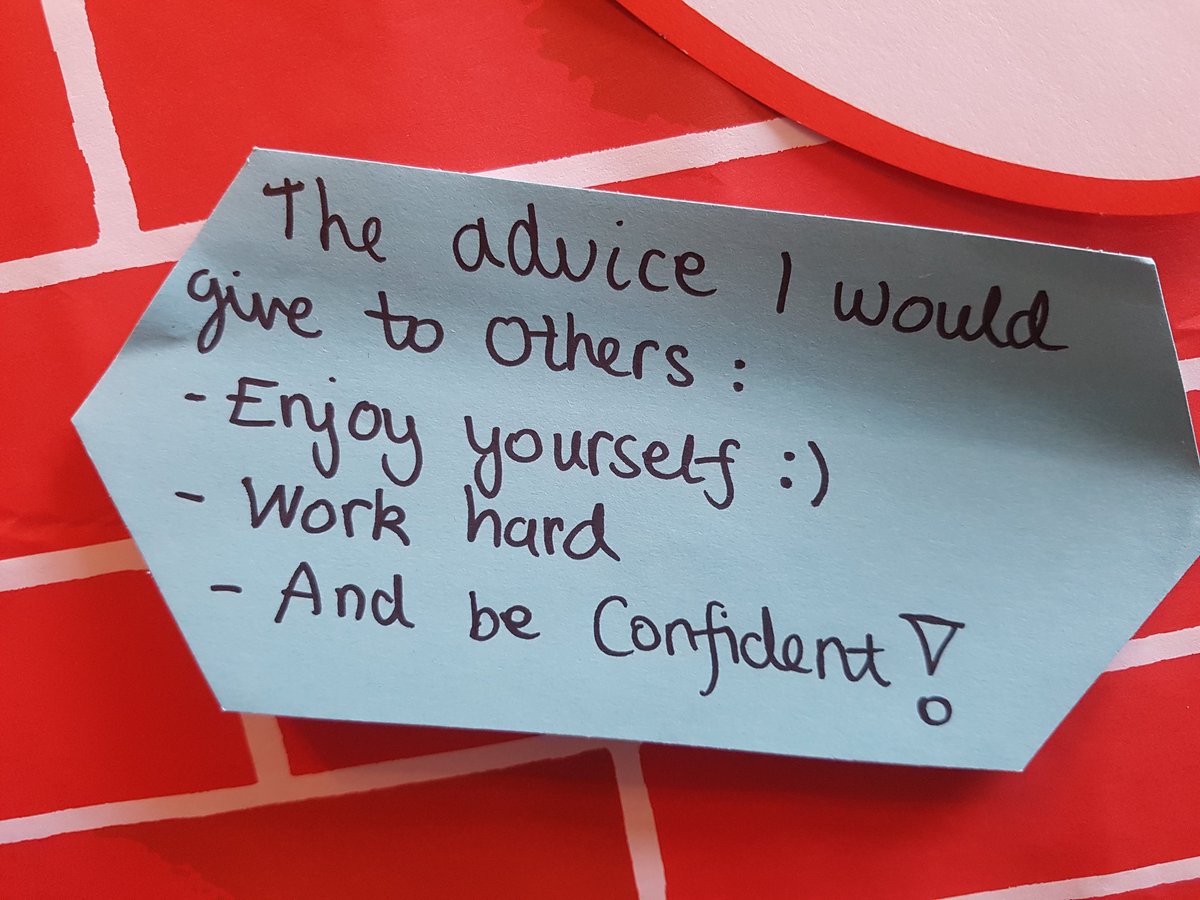 The advice I would
give to others :
- Enjoy yourself :)
- Work hard
- And be Confident!